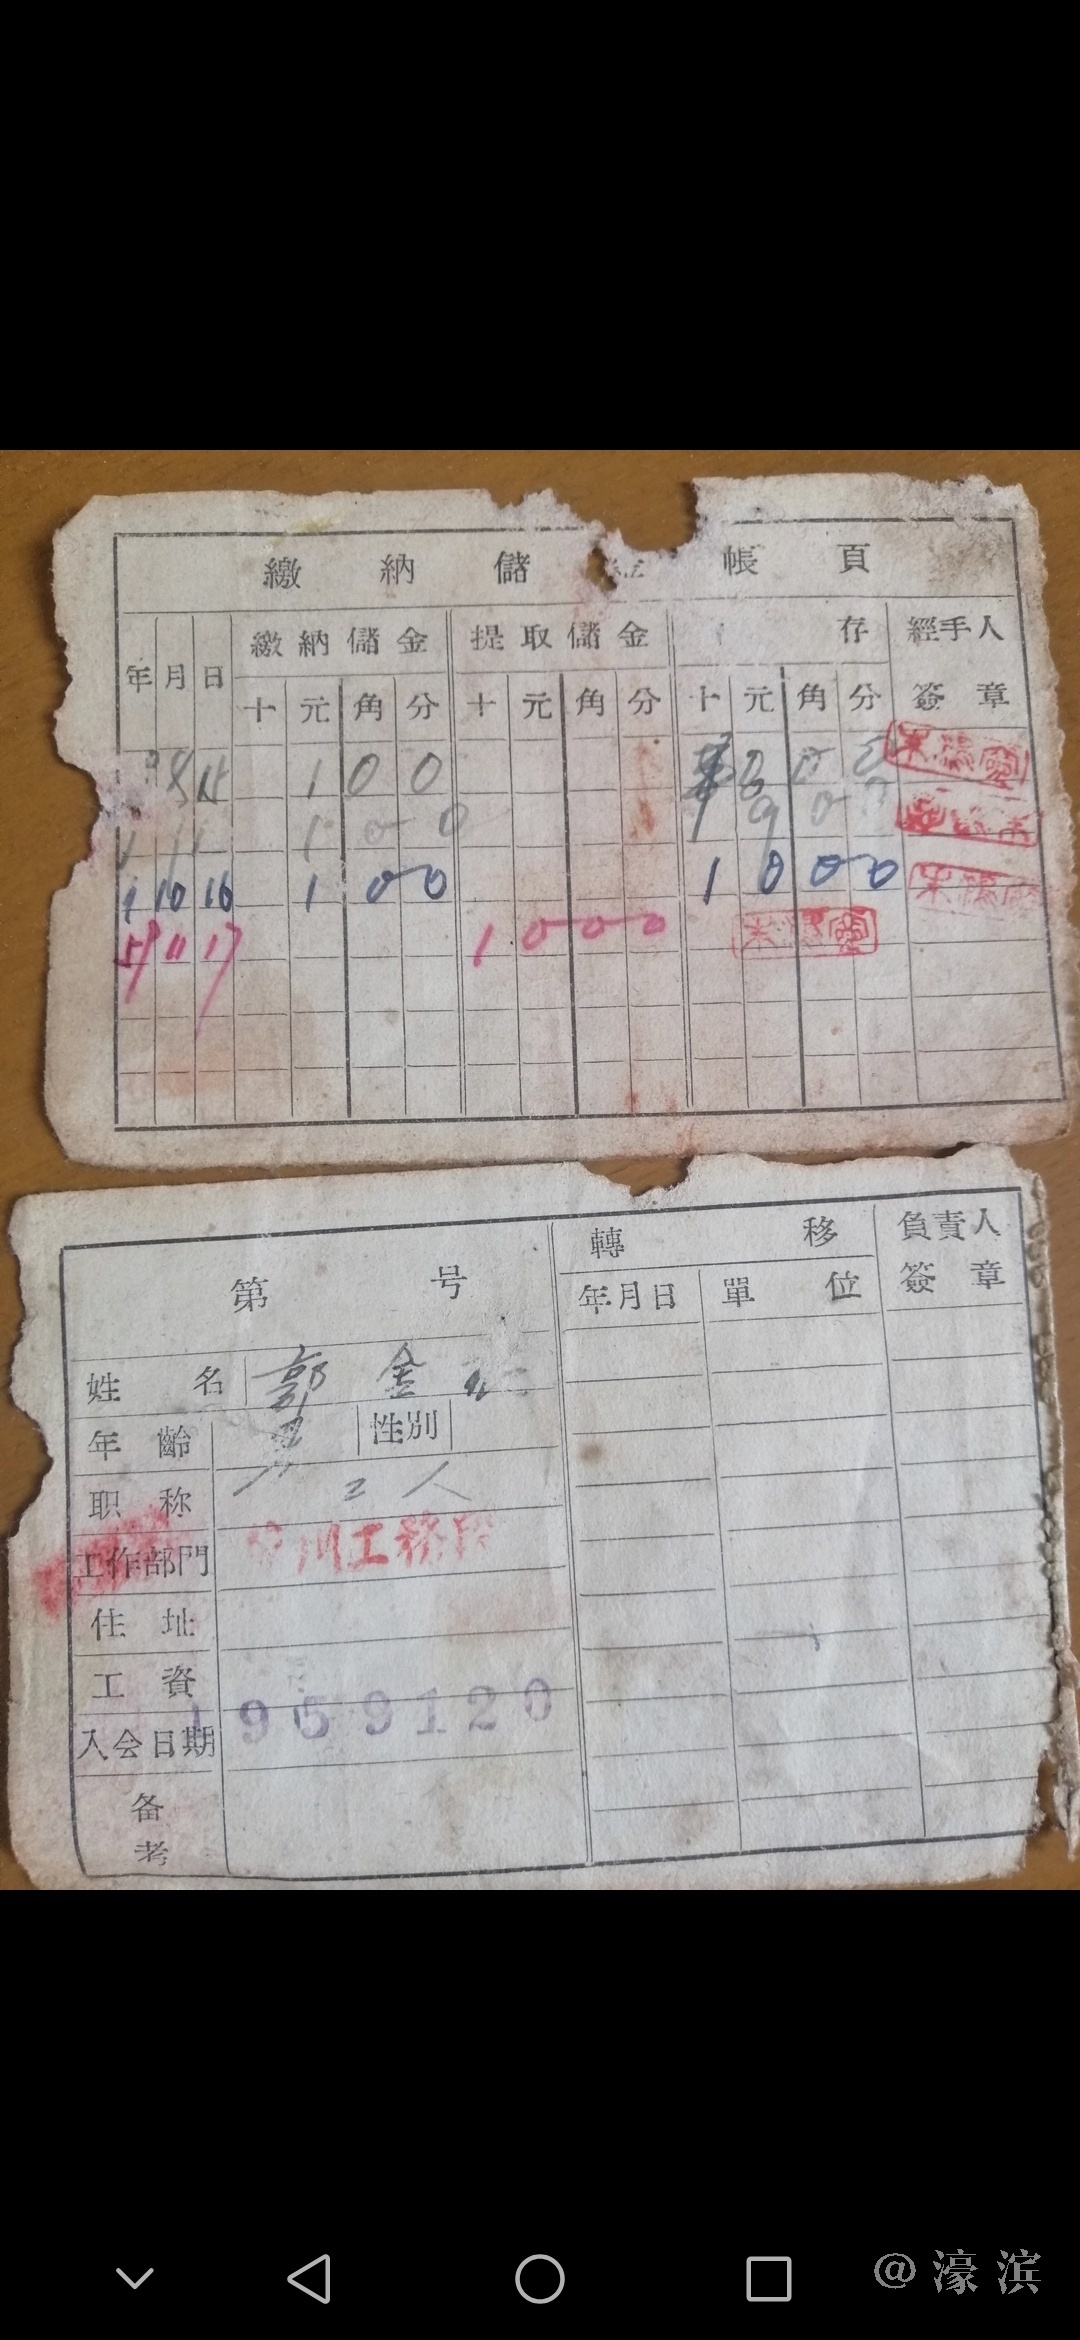 繳納儲 帳頁
年月日 繳納儲金 提取儲金 存 經手人簽章
十元角分 十元角分 十元角分
8 15 1 0 0
1 0 0 9 0
10 16 1 0 0 1 0 0 0
59 11 17 1 0 0 0
第 号 轉移 負責人簽章
年月日 單位
姓名 郭金
年齡 男 性別
职称 工人
工作部門 川工務段
住址
工資
入会日期 1959120
备考
@濠滨